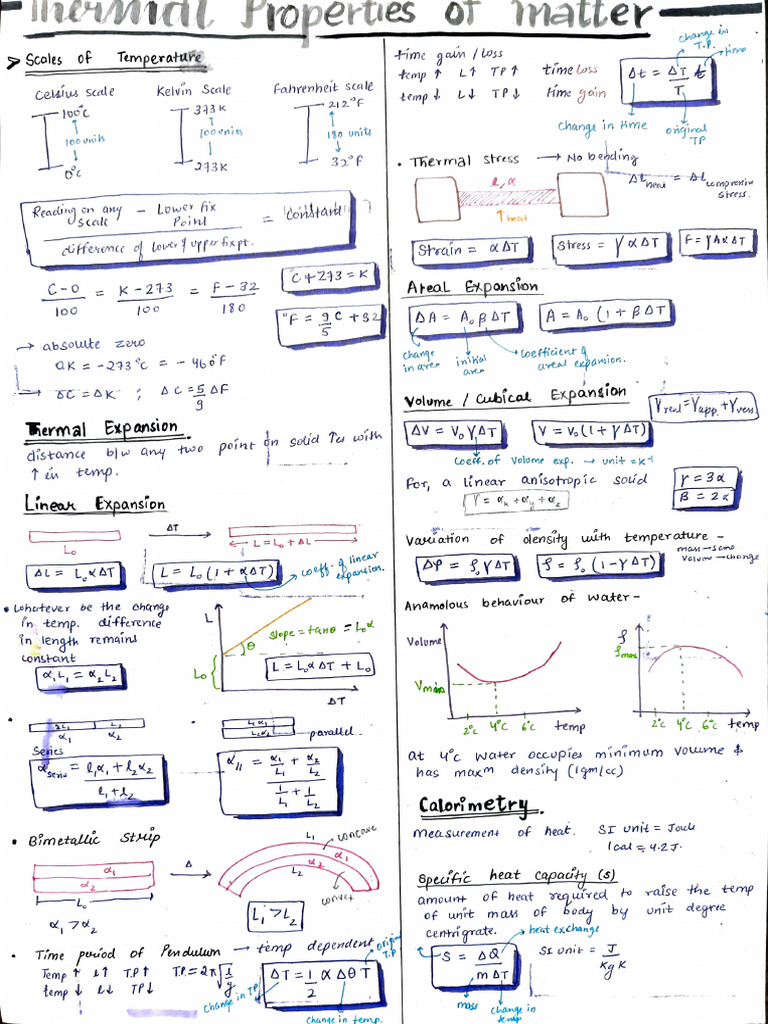 Thermal Properties of matter
Scales of Temperature
Celsius scale
Kelvin Scale
Fahrenheit scale
100°C
373K
212°F
100units
100units
180 units
0°C
273K
32°F
Reading on any Scale – Lower fix Point
difference of lower & upper fix pt.
= constant
C-0/100 = K-273/100 = F-32/180
C+273=K
°F = 9/5 C + 32
→ absoulte zero
0K = -273°C = -460°F
→ ΔC=ΔK ; ΔC=5/9 ΔF
Thermal Expansion.
distance b/w any two point on solid ↑es with
↑ in temp.
Linear Expansion
L₀
ΔT
L=L₀+ΔL
ΔL = L₀αΔT
L=L₀(1+αΔT)
coeff. of linear
expansion.
• Whatever be the change
in temp. difference
in length remains
constant
α₁L₁=α₂L₂
L
slope=tanθ=L₀α
θ
L₀
L=L₀αΔT+L₀
ΔT
L₂
α₁ α₂
Series
α series = l₁α₁+l₂α₂/l₁+l₂
L₁α₁
L₂α₂
parallel.
α∥ = α₁/L₁ + α₂/L₂ / 1/L₁ + 1/L₂
• Bimetallic Strip
α₁
α₂
L₀
α₁>α₂
Δ
L₁
concave
α₁
α₂
L₂
convex
L₁>L₂
• Time period of Pendulum → temp dependent
Temp ↑ l↑ T.P↑ T.P.=2π√l/g
temp ↓ l↓ TP↓
ΔT=1/2 αΔθT
original
T.P
change in TP
change in temp.
time gain / loss
temp ↑ L↑ TP↑ time loss
temp ↓ L↓ TP↓ time gain
Δt = ΔT/T t
change in
T.P.
time
change in time
original
TP
• Thermal stress → No bending
l,α
heat
Δl heat = Δl compression
stress.
Strain = αΔT
Stress = YαΔT
F=YAαΔT
Areal Expansion
ΔA = A₀βΔT
A = A₀(1+βΔT)
change
in area
initial
area
coefficient of
areal expansion.
Volume / Cubical Expansion
γreal=γapp.+γvess
ΔV = V₀γΔT
V=V₀(1+γΔT)
Coeff. of Volume exp. → unit=K⁻¹
For, a linear anisotropic solid
γ=αₓ+αy+αz
γ=3α
β=2α
Variation of density with temperature -
Δρ = ρ₀γΔT
ρ=ρ₀(1-γΔT)
mass→same
Volume→change
Anamolous behaviour of water-
Volume
Vmin
2°C 4°C 6°C temp
ρ
ρmax
2°C 4°C 6°C temp
at 4°C water occupies minimum volume &
has maxm density (1gm/cc)
Calorimetry.
measurement of heat. SI unit = Joule
1cal=4.2J.
Specific heat capacity (s)
amount of heat required to raise the temp
of unit mass of body by unit degree
centigrate.
heat exchange
S = ΔQ/mΔT
SI unit = J/Kg K
mass
change in
temp